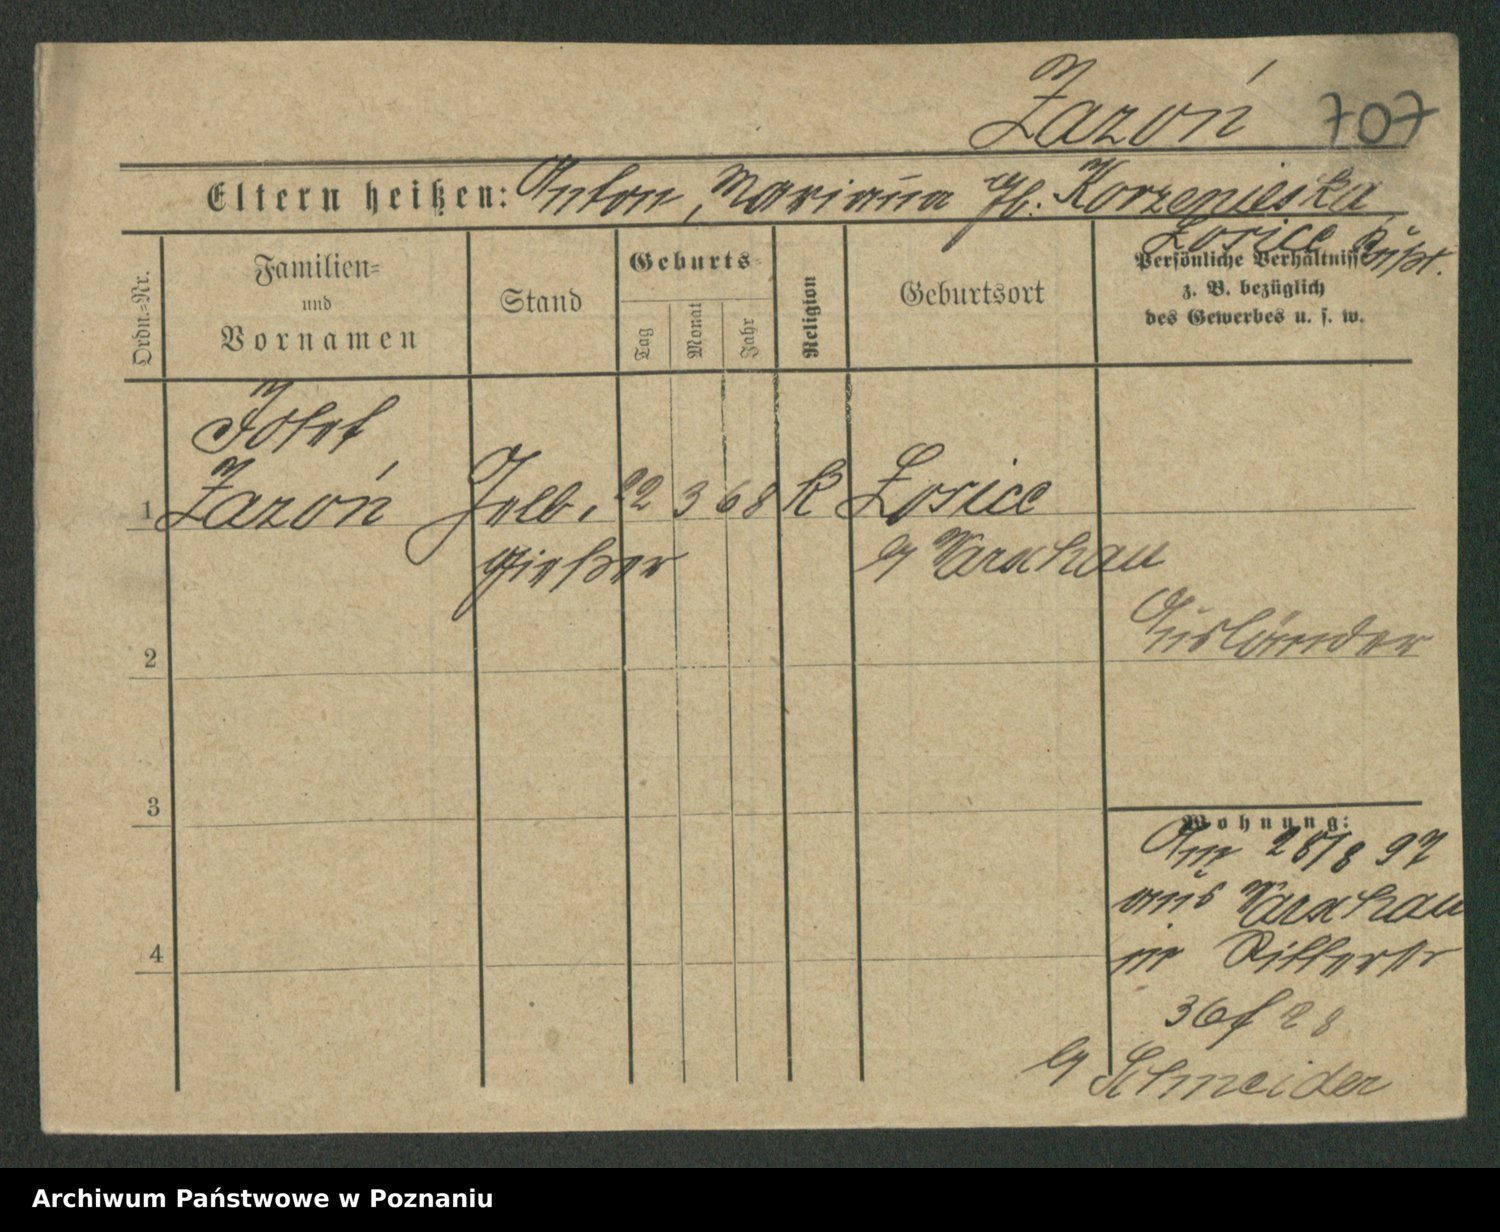 Zazoń 707
Eltern heißen: Anton, Marianna gb. Korzenieska
Łosice Rußl.
Ordn.-Nr.
Familien-
und
Vornamen
Stand
Geburts-
Tag
Monat
Jahr
Religion
Geburtsort
Persönliche Verhältnisse
z. B. bezüglich
des Gewerbes u. s. w.
Josef
1 Zazoń Gelb. 22 3 68 K Łosice
gießer b/ Warschau
Ausländer
2
3
4
Wohnung:
An 28/8 97
aus Warschau
in Ritterstr
36 f 28
b/ Schneider
Archiwum Państwowe w Poznaniu